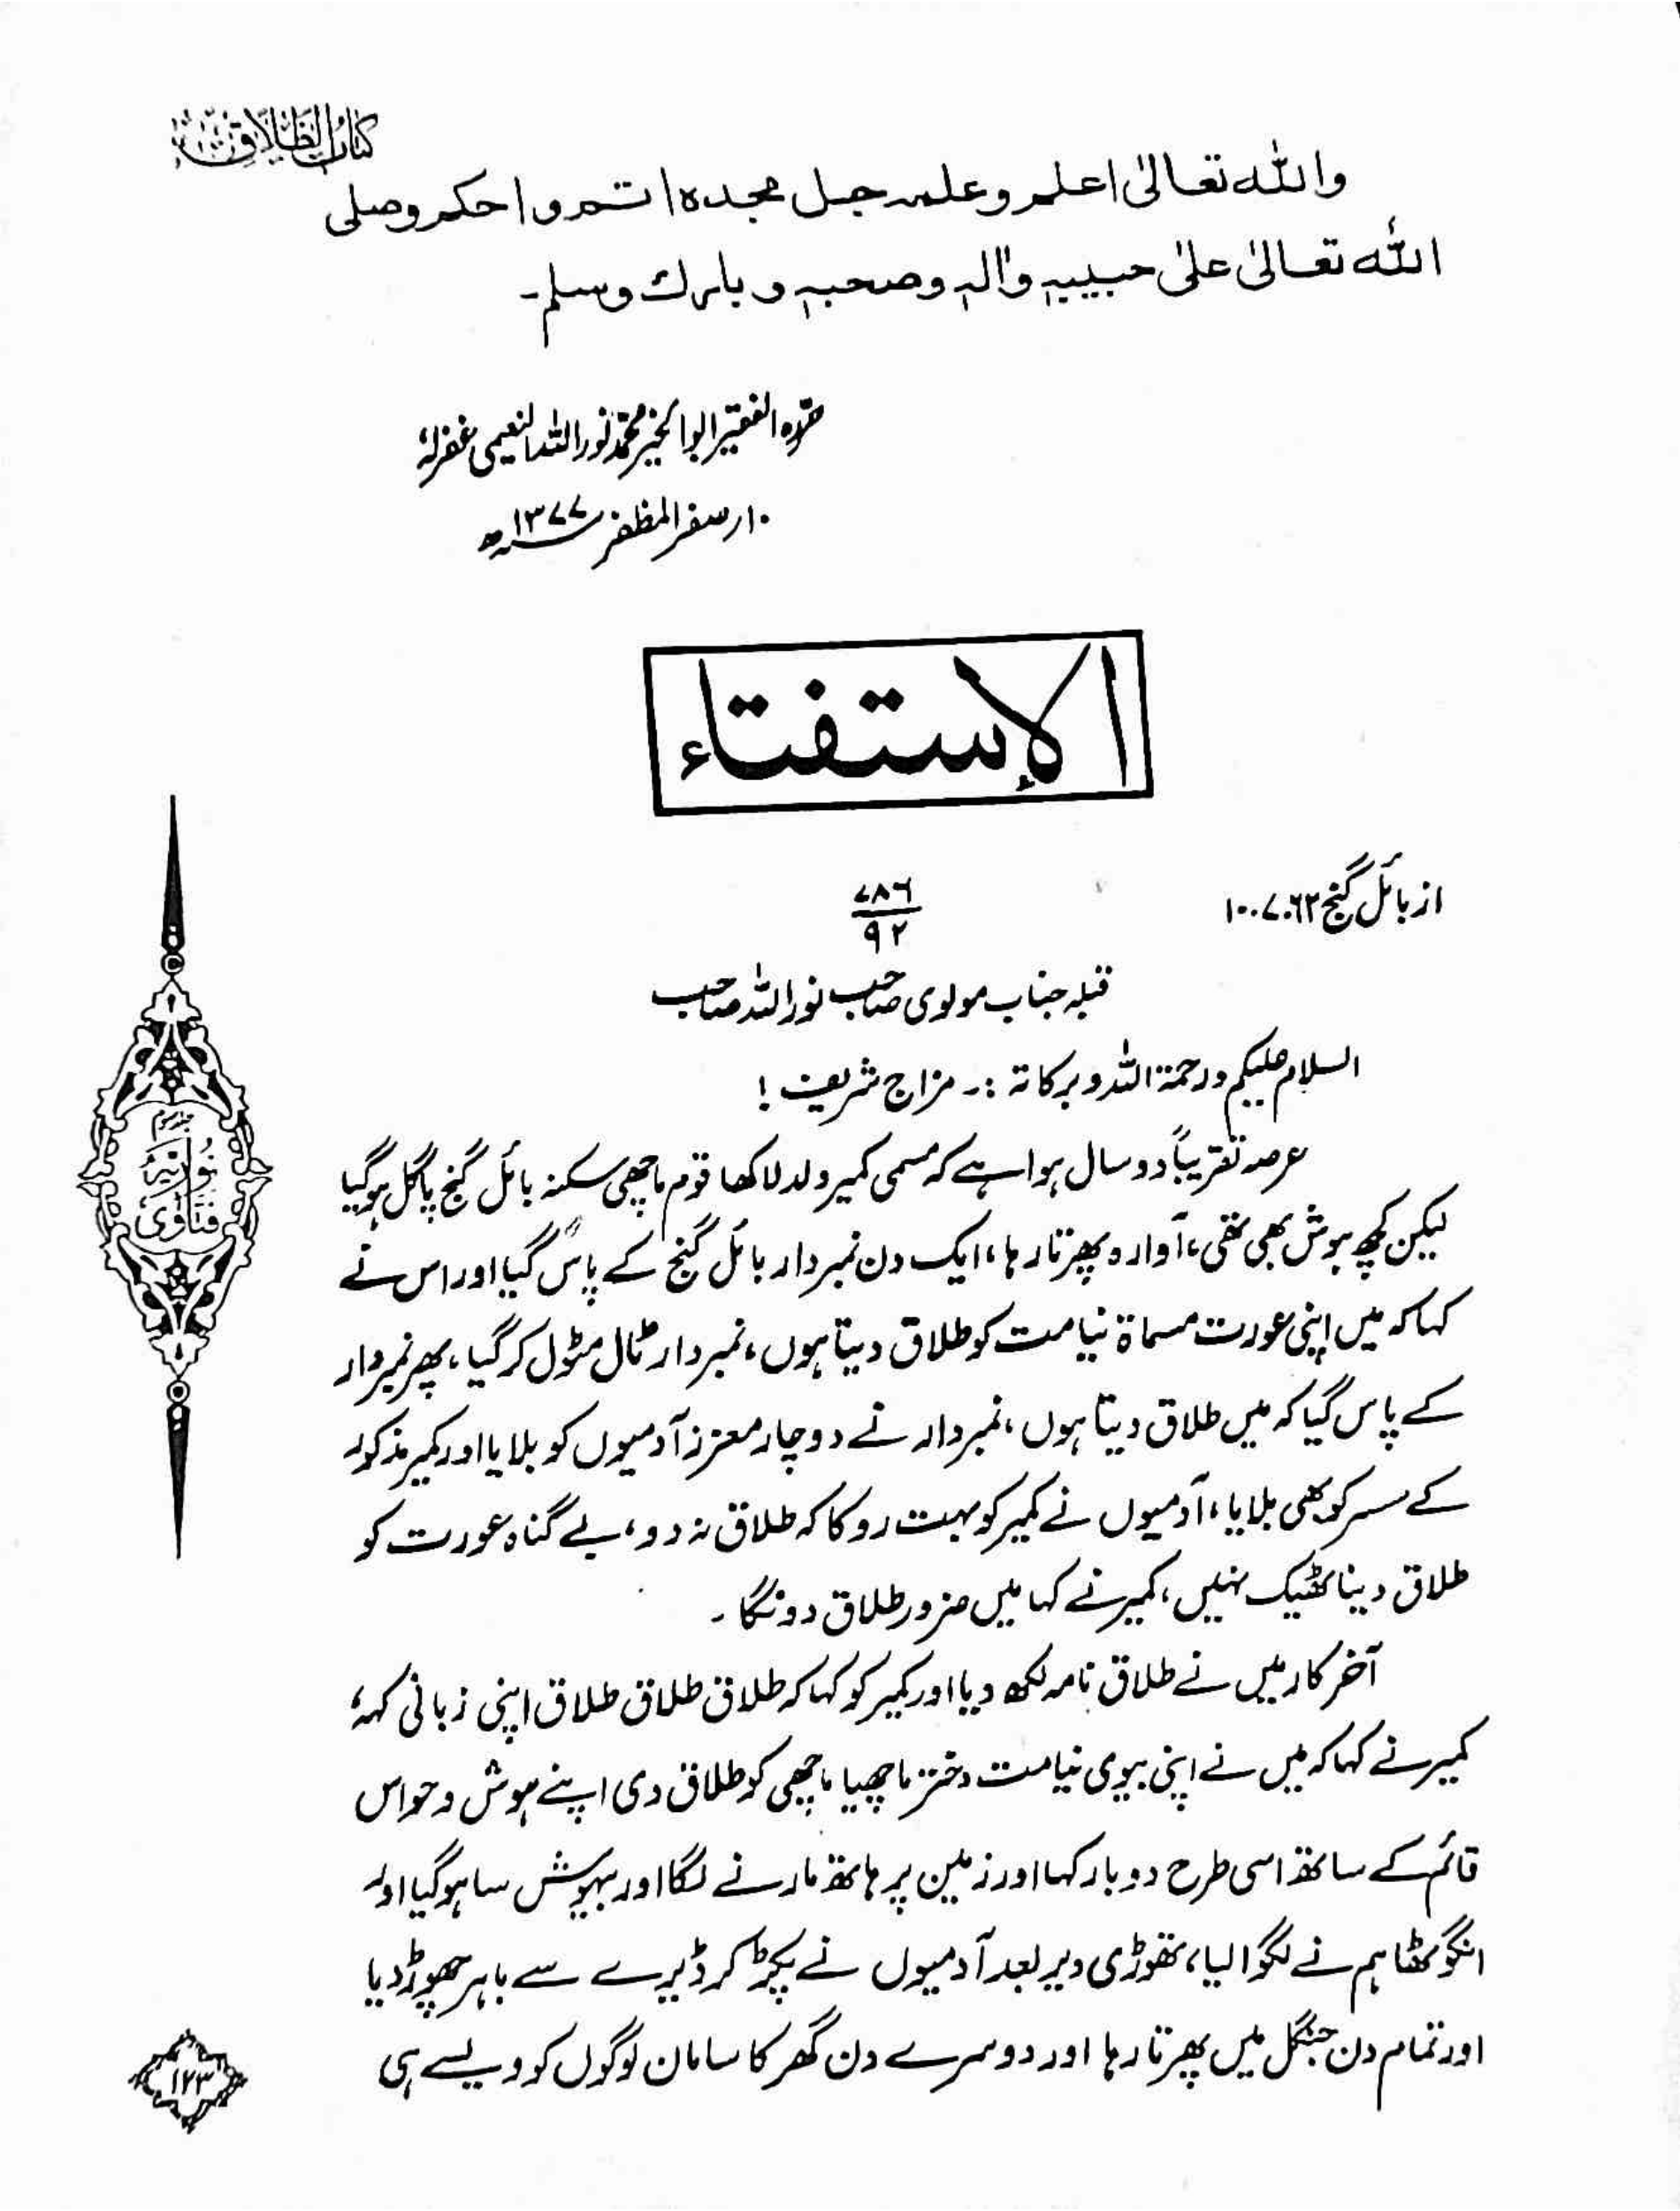 کتاب الطلاق
واللہ تعالیٰ اعلم وعلمہ جل مجدہ اتم واحکم وصلی
اللہ تعالیٰ علیٰ حبیبہٖ واٰلہٖ وصحبہٖ وبارك وسلم۔
حرّرہ الفقیر ابوالخیر محمّد نور اللہ النعیمی غفرلہٗ
۱۰؍صفر المظفر ۱۳۷۷ھ
الإستفتاء
از بائل گنج ۱۰.۷.۶۲
۷۸۶
۹۲
قبلہ جناب مولوی صاحب نور اللہ صاحب
السلام علیکم ورحمۃ اللہ وبرکاتہ :۔ مزاج شریف !
عرصہ تقریباً دو سال ہوا ہے کہ مسمی کمیر ولد لاکھا قوم ماچھی سکنہ بائل گنج پاگل ہوگیا
لیکن کچھ ہوش بھی تھی، آوارہ پھرتا رہا، ایک دن نمبردار بائل گنج کے پاس گیا اور اس نے
کہا کہ میں اپنی عورت مسماۃ نیامت کو طلاق دیتا ہوں، نمبردار ٹال مٹول کر گیا، پھر نمبردار
کے پاس گیا کہ میں طلاق دیتا ہوں، نمبردار نے دوچار معزز آدمیوں کو بلایا اور کمیر مذکور
کے سسر کو بھی بلایا، آدمیوں نے کمیر کو بہت روکا کہ طلاق نہ دو، بے گناہ عورت کو
طلاق دینا ٹھیک نہیں، کمیر نے کہا میں ضرور طلاق دونگا ۔
آخر کار میں نے طلاق نامہ لکھ دیا اور کمیر کو کہا کہ طلاق طلاق طلاق اپنی زبانی کہہ،
کمیر نے کہا کہ میں نے اپنی بیوی نیامت دختر ماچھیا ماچھی کو طلاق دی اپنے ہوش و حواس
قائم کے ساتھ اسی طرح دو بار کہا اور زمین پر ہاتھ مارنے لگا اور بیہوش سا ہوگیا اور
انگوٹھا ہم نے لگوا لیا، تھوڑی دیر بعد آدمیوں نے پکڑ کر ڈیرے سے باہر چھوڑ دیا
اور تمام دن جنگل میں پھرتا رہا اور دوسرے دن گھر کا سامان لوگوں کو ویسے ہی
نوریہ
فتاوی
۱۲۳